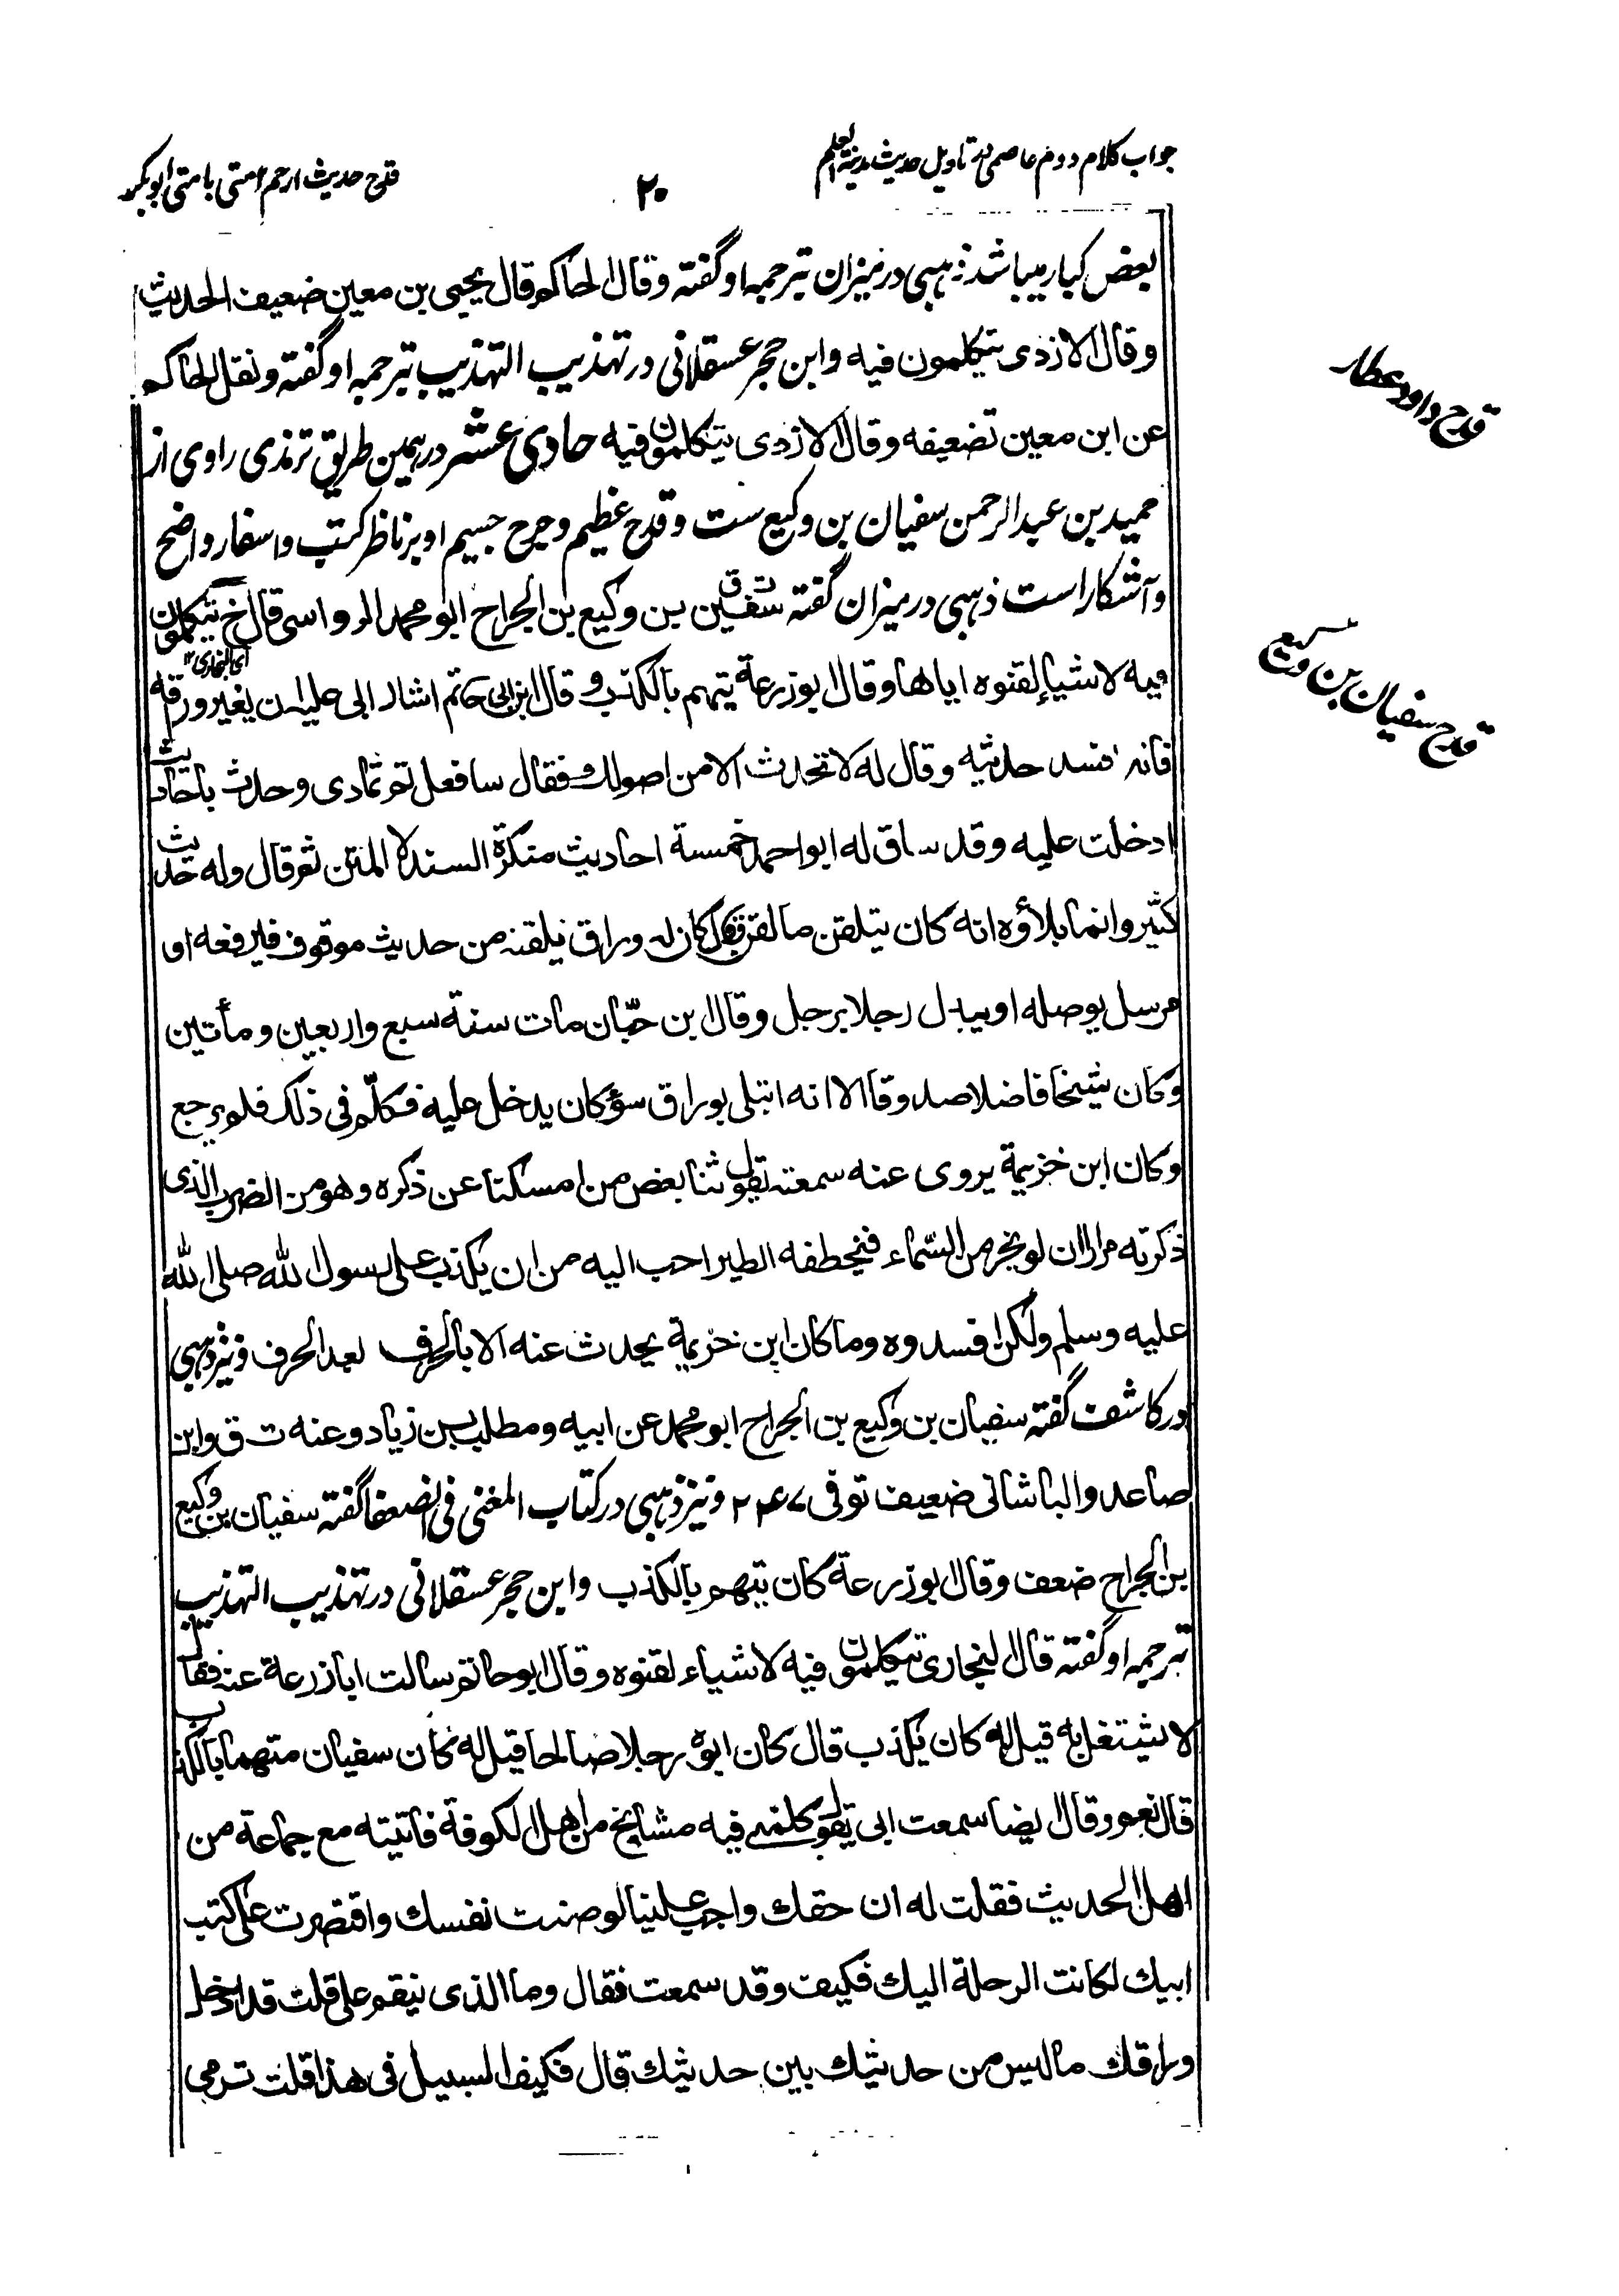 جواب کلام دوم عاصمی در تاویل حدیث مدینة العلم
۲۰
قدح حدیث ارحم امتی بامتی ابوبکر
بعض کبار میباشد ذهبی در میزان بترجمه او گفته وقال الحاکم قال یحیی بن معین ضعیف الحدیث
وقال الازدی یتکلمون فیه وابن حجر عسقلانی در تهذیب التهذیب بترجمه او گفته ونقل الحاکم
قدح داود عطار
عن ابن معین تضعیفه وقال الازدی یتکلمون فیه حادی عشر در همین طریق ترمذی راوی از
حمید بن عبد الرحمن سفیان بن وکیع ست وقدح عظیم وجرح جسیم او بر ناظر کتب واسفار واضح
وآشکار است ذهبی در میزان گفته سفین ت ق بن وکیع بن الجراح ابو محمد الرواسی قال خ یتکلمون
ای البخاری ۱۲
فیه لاشیاء لقنوه ایاها وقال ابو زرعة یتهم بالکذب وقال ابن ابی حاتم اشار ابی علیه ان یغیر وراقه
قدح سفیان بن وکیع
فانه افسد حدیثه وقال له لا تحدث الا من اصولك فقال سافعل ثم تمادی وحدث باحادیث
ادخلت علیه وقد ساق له ابو احمد خمسة احادیث منکرة السند لا المتن ثم قال وله حدیث
کثیر وانما بلاؤه انه کان یتلقن ما لقن یقال کان له وراق یلقنه من حدیث موقوف فیرفعه او
مرسل یوصله او یبدل رجلا برجل وقال ابن حبّان مات سنة سبع واربعین ومأتین
وکان شیخا فاضلا صدوقا الا انه ابتلی بوراق سوء کان یدخل علیه فکلّم فی ذلك فلم یرجع
وکان ابن خزیمة یروی عنه سمعته یقول ثنا بعض من امسکنا عن ذکره وهو من الضرب الذی
ذکرته مرارا ان لو یخر من السّماء فیخطفه الطیر احب الیه من ان یکذب علی رسول الله صلی الله
علیه وسلم ولکن افسدوه وما کان ابن خزیمة یحدث عنه الا بالحرف بعد الحرف ونیز ذهبی
در کاشف گفته سفیان بن وکیع بن الجراح ابو محمد عن ابیه ومطلب بن زیاد وعنه ت ق وابن
صاعد والباشانی ضعیف توفی ۲۴۷ ونیز ذهبی در کتاب المغنی فی الضعفا گفته سفیان بن وکیع
بن الجراح ضعف وقال ابو زرعة کان یتهم بالکذب وابن حجر عسقلانی در تهذیب التهذیب
بترجمه او گفته قال البخاری یتکلمون فیه لاشیاء لقنوه وقال ابو حاتم سالت ابا زرعة عنه فقال
لا یشتغل به قیل له کان یکذب قال کان ابوه رجلا صالحا قیل له کان سفیان متهما بالکذب
قال نعم وقال ایضا سمعت ابی یقول کلمنی فیه مشایخ من اهل الکوفة فاتیته مع جماعة من
اهل الحدیث فقلت له ان حقك واجب علینا لو صنت نفسك واقتصرت علی کتب
ابیك لکانت الرحلة الیك فکیف وقد سمعت فقال وما الذی ینقم علی قلت قد ادخل
وراقك ما لیس من حدیثك بین حدیثك قال فکیف السبیل فی هذا قلت ترمی